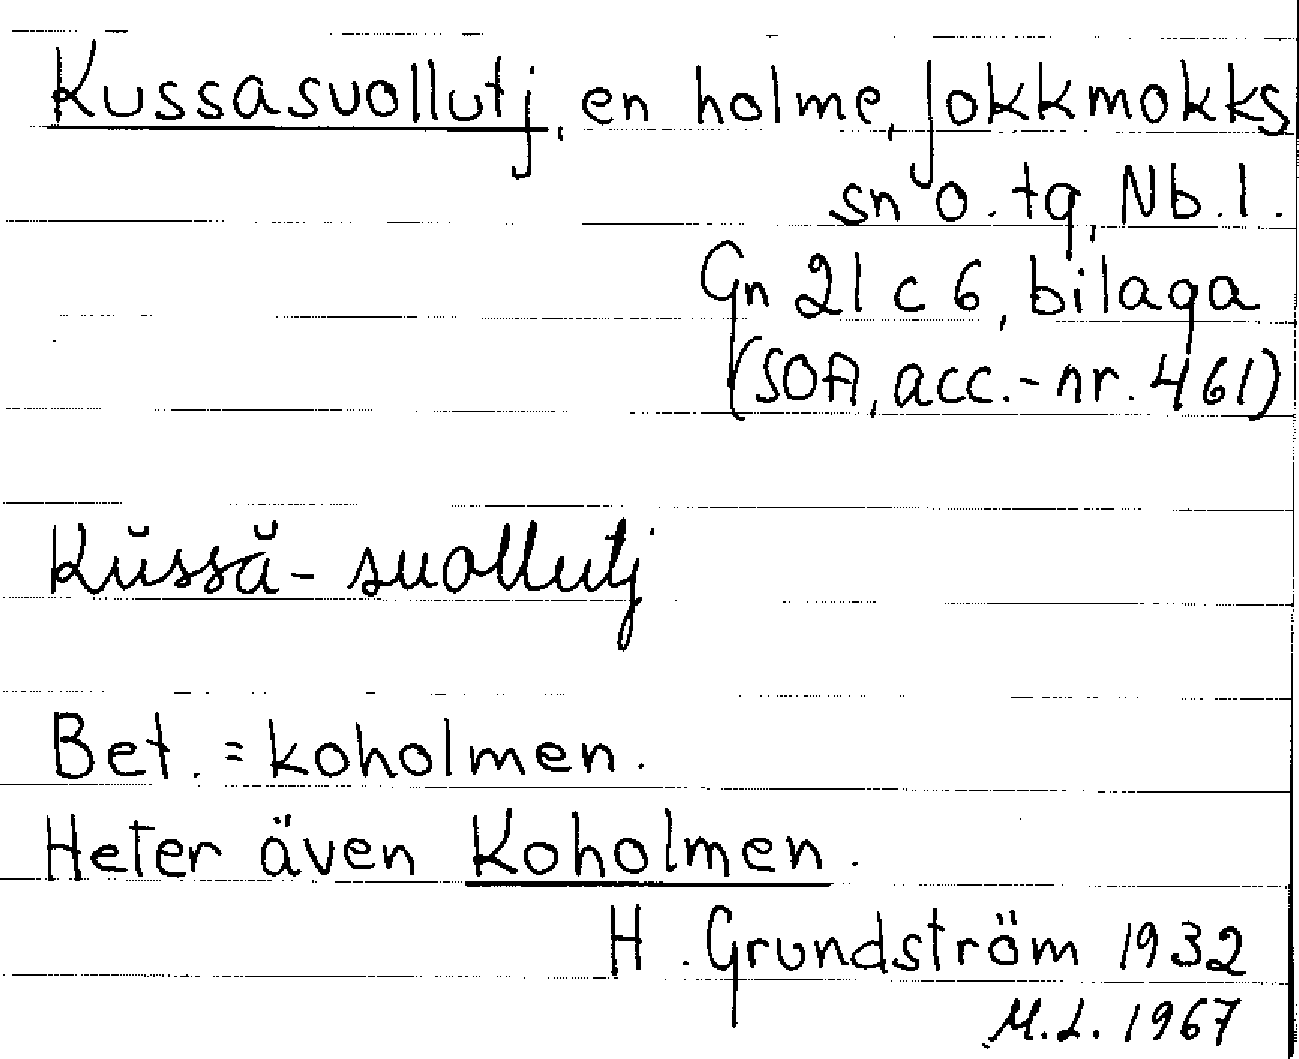 Kussasuollutj, en holme, Jokkmokks
sn o. tg, Nb. l.
Gn 21 c 6, bilaga
(SOA, acc.-nr. 461)
Kŭssă- suollutj
Bet. = koholmen.
Heter även Koholmen.
H. Grundström 1932
M.L. 1967